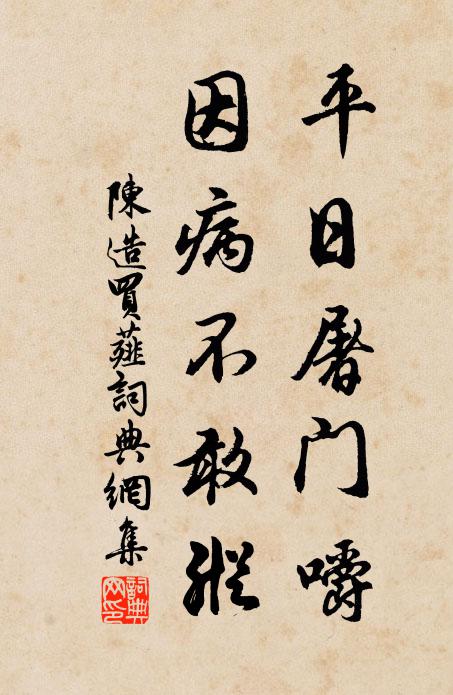 平日屠門嚼
因病不敢縱
陳造買薤詞典網集
詞典網印